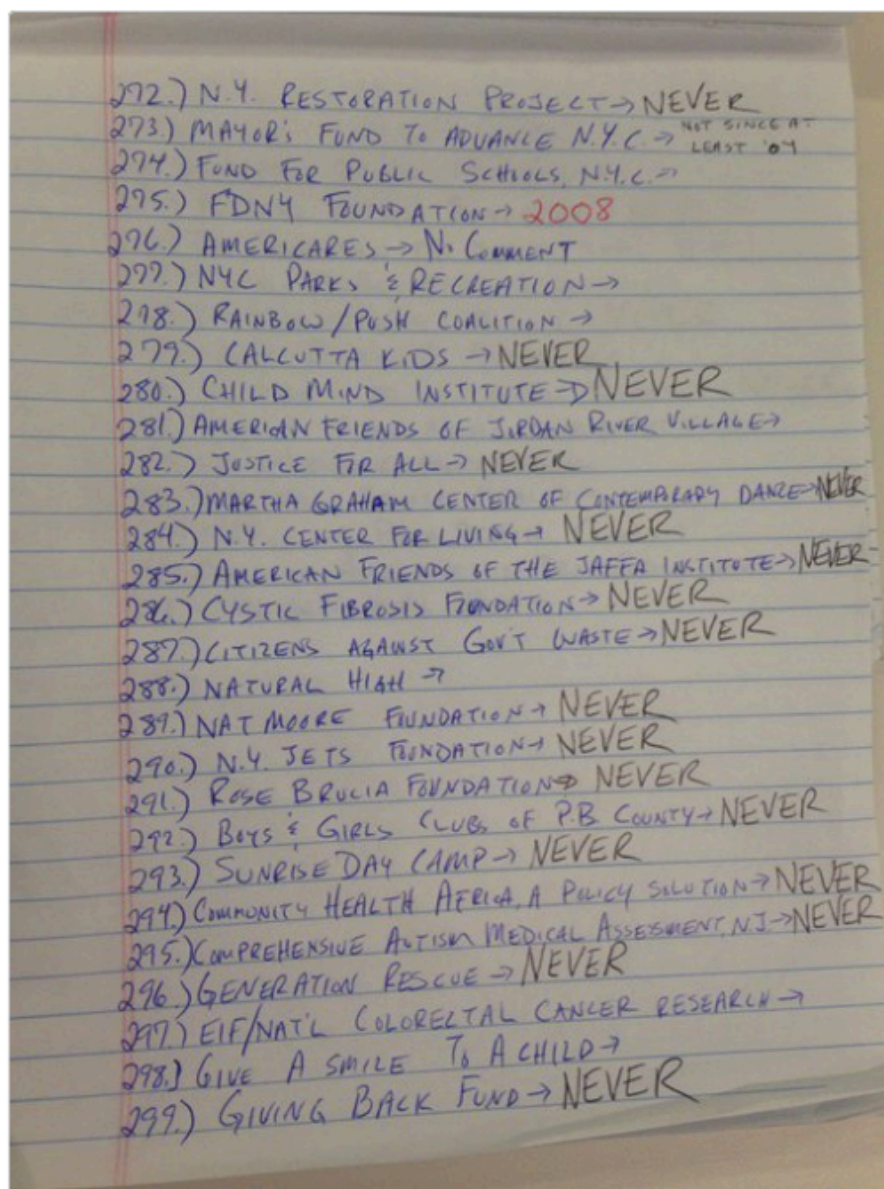 272.) N.Y. RESTORATION PROJECT → NEVER
273.) MAYOR'S FUND TO ADVANCE N.Y.C. → NOT SINCE AT LEAST '04
274.) FUND FOR PUBLIC SCHOOLS, N.Y.C. →
275.) FDNY FOUNDATION → 2008
276.) AMERICARES → NO COMMENT
277.) NYC PARKS & RECREATION →
278.) RAINBOW/PUSH COALITION →
279.) CALCUTTA KIDS → NEVER
280.) CHILD MIND INSTITUTE → NEVER
281.) AMERICAN FRIENDS OF JORDAN RIVER VILLAGE →
282.) JUSTICE FOR ALL → NEVER
283.) MARTHA GRAHAM CENTER OF CONTEMPORARY DANCE → NEVER
284.) N.Y. CENTER FOR LIVING → NEVER
285.) AMERICAN FRIENDS OF THE JAFFA INSTITUTE → NEVER
286.) CYSTIC FIBROSIS FOUNDATION → NEVER
287.) CITIZENS AGAINST GOV'T WASTE → NEVER
288.) NATURAL HIGH →
289.) NAT MOORE FOUNDATION → NEVER
290.) N.Y. JETS FOUNDATION → NEVER
291.) ROSE BRUCIA FOUNDATION → NEVER
292.) BOYS & GIRLS CLUBS OF P.B. COUNTY → NEVER
293.) SUNRISE DAY CAMP → NEVER
294.) COMMUNITY HEALTH AFRICA, A POLICY SOLUTION → NEVER
295.) COMPREHENSIVE AUTISM MEDICAL ASSESSMENT, N.J. → NEVER
296.) GENERATION RESCUE → NEVER
297.) EIF/NAT'L COLORECTAL CANCER RESEARCH →
298.) GIVE A SMILE TO A CHILD →
299.) GIVING BACK FUND → NEVER